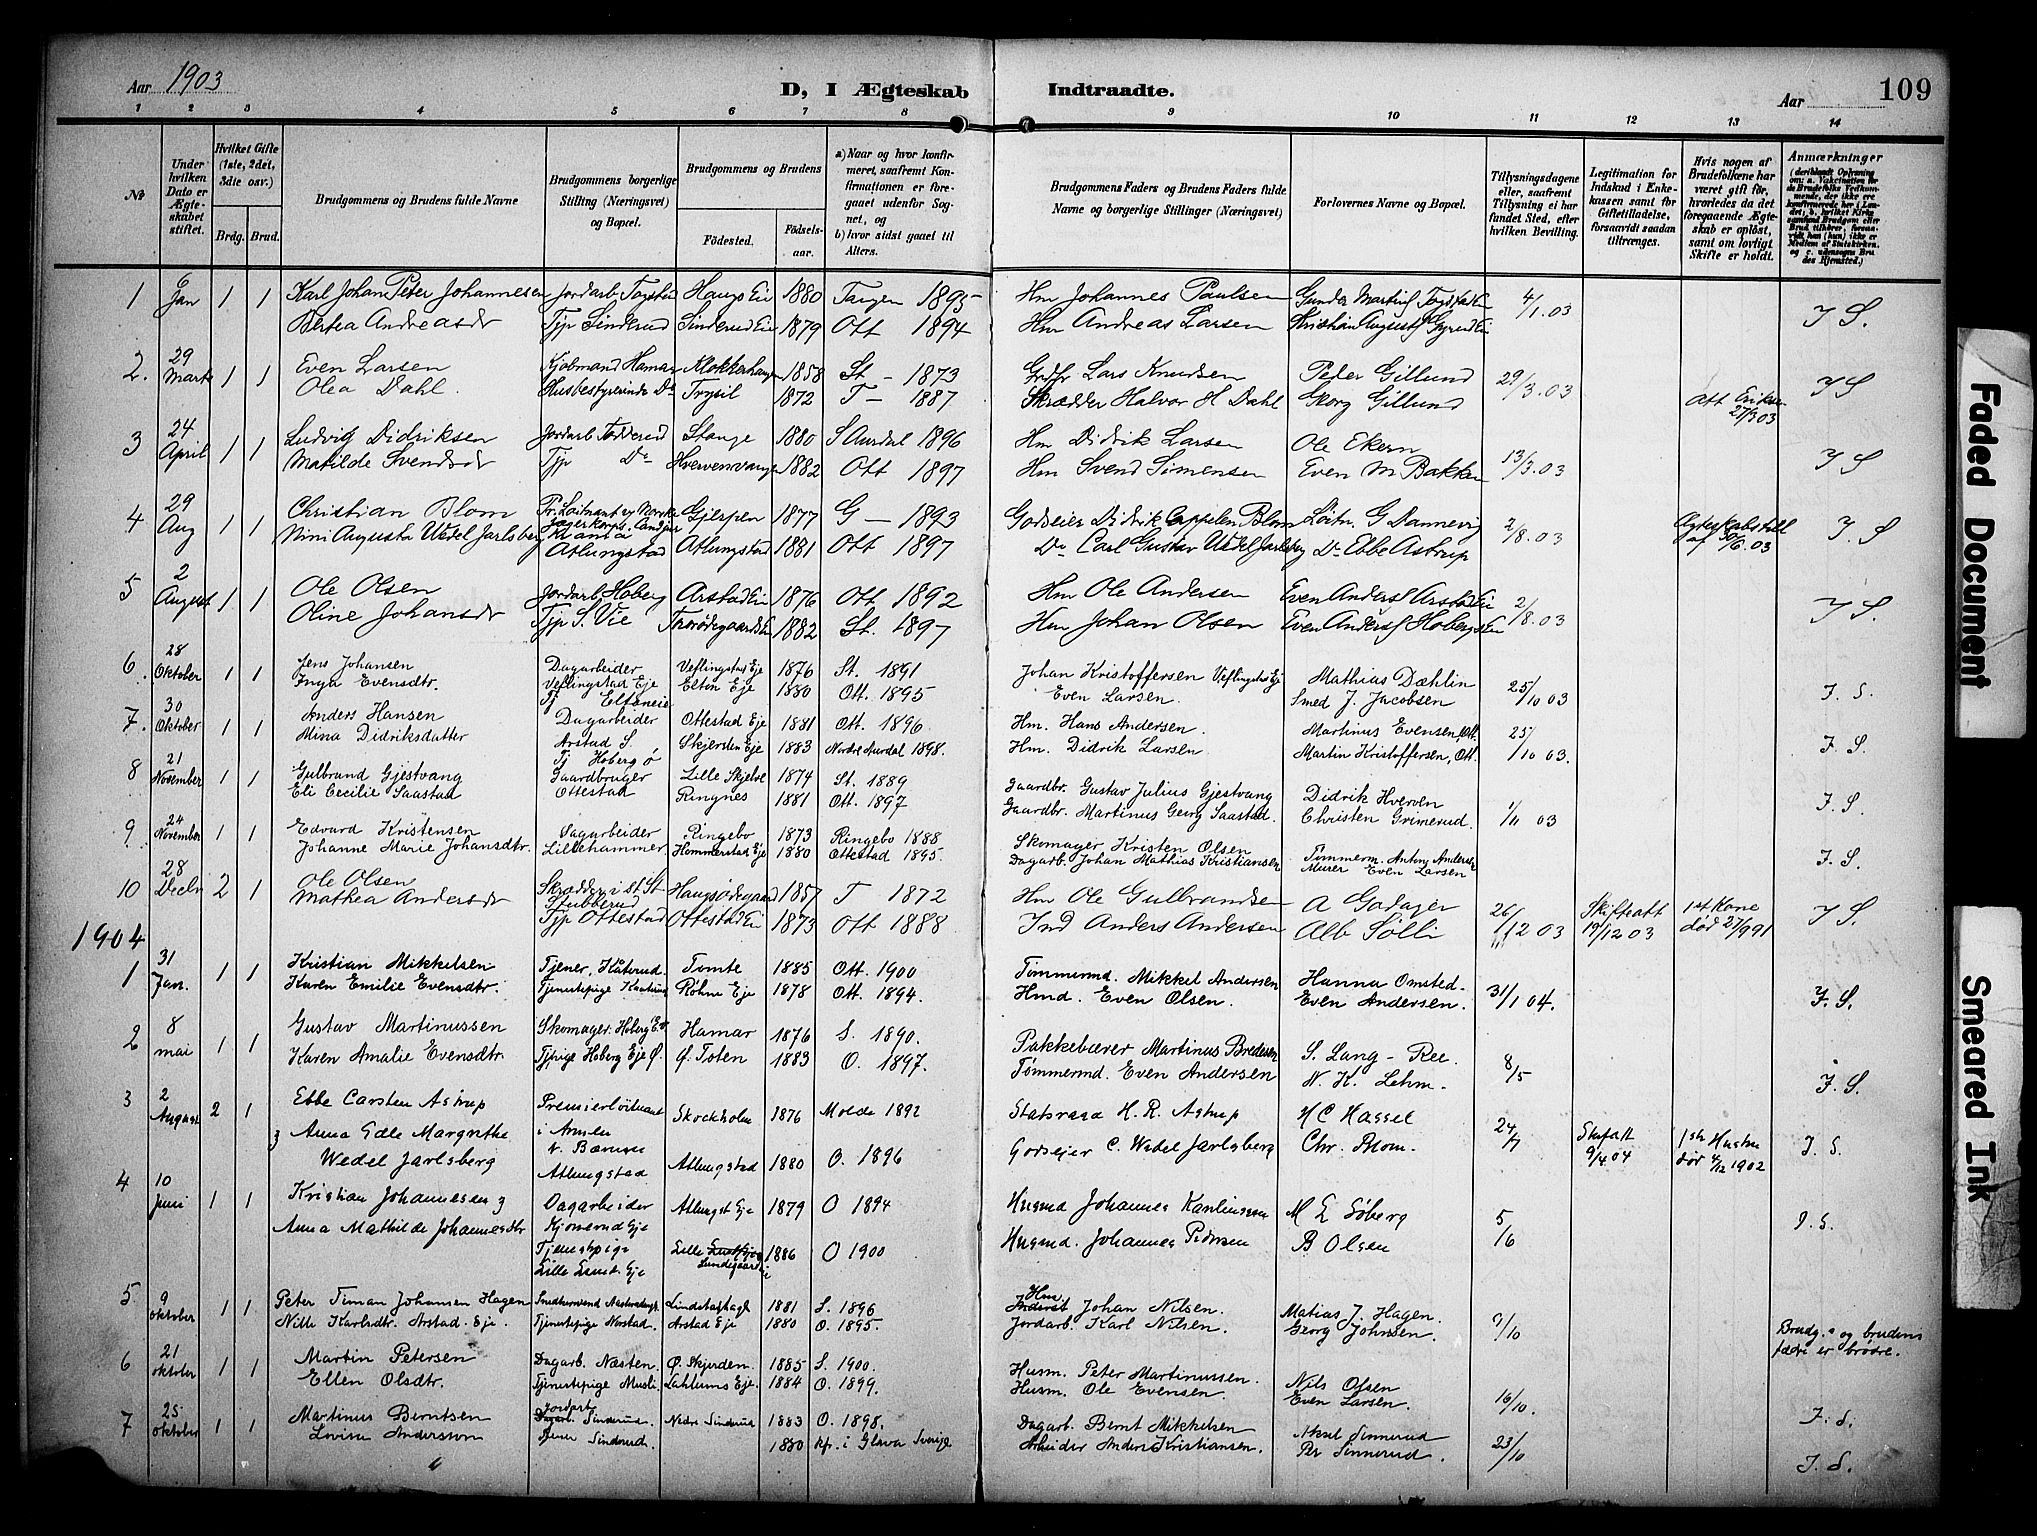 Aar 1903
D, I Ægteskab Indtraadte.
Aar 109
1 2 3 4 5 6 7 8 9 10 11 12 13 14
No
Under hvilken Dato er Ægteskabet stiftet.
Hvilket Gifte (1ste, 2det, 3die osv.)
Brdg. Brud.
Brudgommens og Brudens fulde Navne
Brudgommens borgerlige Stilling (Næringsvei) og Bopæl.
Brudgommens og Brudens
Fødested.
Fødselsaar.
a) Naar og hvor konfirmeret, saafremt Konfirmationen er foregaaet udenfor Sognet, og
b) hvor sidst gaaet til Alters.
Brudgommens Faders og Brudens Faders fulde Navne og borgerlige Stillinger (Næringsvei)
Forlovernes Navne og Bopæl.
Tillysningsdagene eller, saafremt Tillysning ei har fundet Sted, efter hvilken Bevilling.
Legitimation for Indskud i Enkekassen samt for Giftetilladelse, forsaavidt saadan tiltrænges.
Hvis nogen af Brudefolkene har været gift før, hvorledes da det foregaaende Ægteskab er opløst, samt om lovligt Skifte er holdt.
Anmærkninger
1 6 Jan 1 1 Karl Johan Peter Johannesen Jordarb Togstad Haugs Ei 1880 Tangen 1895 Hm Johannes Paulsen 4/1.03
Bertea Andreasdr Tjp Sinderud Sinderud Ei 1879 Ott 1894 Hm Andreas Larsen J S.
2. 29 Marts 1 1 Even Larsen Kjøbmand Hamar Klokkerhaugen 1858 St - 1873 Lars Knudsen Peder Gillund 29/3.03
Olea Dahl. Husbestyrerinde Do Trysil 1872 T - 1887 Skrædder Halvor H Dahl Georg Gillund Att Eriksen 27/3 03 J S
3 24 April 1 1 Ludvig Didriksen Jordarb Stange 1880 S Aurdal 1896 Hm Didrik Larsen Ole Ekern 13/3.03
Matilde Svendsdr Tjp Do 1882 Ott 1897 Hm Svend Simensen Even M Bakken J S
4 29 Aug 1 1 Christian Blom Gjerpen 1877 G - 1893 Godseier Didrik Cappelen Blom Løitn. G Dannevig 2/8.03
Mimi Augusta Wedel Jarlsberg Atlungstad Atlungstad 1881 Ott 1897 Do Carl Gustav Wedel Jarlsberg Do Ebbe Astrup J. S
5 2 August 1 1 Ole Olsen Jordarb Hoberg Arstad Ei 1876 Ott 1892 Hm Ole Andersen 2/8.03
Oline Johansdr Tjp S. Vie 1882 St. 1897 Hm Johan Olsen J S.
6. 28 Oktober 1 1 Jens Johansen Dagarbeider Veflingstad Eje 1876 St. 1891 Johan Kristoffersen Mathias Dæhlin 25/10 03
Inga Evensdtr. Elton Eje 1880 Ott. 1895 Even Larsen. Smed J. Jacobsen J. S.
7. 30 Oktober 1 1 Anders Hansen Dagarbeider Arstad S. Ottestad Eje 1881 Ott. 1896 Hm. Hans Andersen. Martinus Evensen, Ott. 25/10 03.
Mina Didriksdatter Tj Hoberg ø Skjerden Eje 1883 Nordre Aurdal 1898. Hm. Didrik Larsen Martin Kristoffersen, Ott. J. S.
8 21 November 1 1 Gulbrand Gjestvang Gaardbruger Lille Skjelve 1874 St. 1889 Gaardbr. Gustav Julius Gjestvang Didrik Hverven 1/11 03
Eli Cecilie Saastad Ottestad Ringnes 1881 Ott. 1897 Gaardbr. Martinus Georg Saastad. Christen Grimerud. J. S.
9 24 November 1 1 Edvard Kristensen Dagarbeider Ringebo 1873 Ringebo 1888 Skomager Kristen Olsen Tømmerm. Anton Andersen
Johanne Marie Johansdtr. Lillehammer Hommerstad Eje 1880 Ottestad 1895. Dagarb. Johan Mathias Kristiansen Murer Even Larsen J. S.
10 28 Decbr 2 1 Ole Olsen Skrædder i St. Stubberud 1857 T 1872 Hm Ole Gulbrandsen 26/12 03 Skifteatt 19/12 03 1st Kone død 27/9 91
Mathea Andersdr Tjp Ottestad Ottestad Ei 1873 Ott 1888 Ind Anders Andersen Alb Sølli J S.
1904
1 31 Jan. 1 1 Kristian Mikkelsen Tjener, Tomte 1885 Ott. 1900 Tømmermd. Mikkel Andersen Hanna Omsted. 31/1 04.
Karen Emilie Evensdtr. Tjenestepige Røhne Eje 1878 Ott. 1894. Hmd. Even Olsen. Even Andersen. J. S.
2 8 mai 1 1 Gustav Martinussen Skomager. Hamar 1876 S. 1890. Pakkebærer Martinus Bredesen S. Lang-Ree. 8/5
Karen Amalie Evensdtr. Tjpige Hoberg Eje Ø. Ø. Toten 1883 O. 1897. Tømmermd. Even Andersen N. K. Lehm. J. S.
3 2 August 2 1 Ebbe Carsten Astrup Premierløitnant Stockholm 1876 Molde 1892 Statsraad H. R. Astrup H C Hassel 24/7 9/4 04 1ste Hustru død 4/12 1902
Anna Edle Margrethe Wedel Jarlsberg V. Bærum Atlungstad Atlungstad 1880 O. 1896 Godseier C. Wedel Jarlsberg Chr. Blom. J. S.
4 10 Juni 1 1 Kristian Johannesen Dagarbeider Atlungst Eje 1879 O 1894 Husmd Johannes M E Søberg 5/6
Anna Mathilde Johannesdtr Tjenestpige Lille 1886 O 1900 Husmd. Johannes Pedersen B Olsen J. S.
5 9 oktober 1 1 Peter Timan Johansen Hagen 1881 S. 1896 Hm. Johan Nilsen. Matias J. Hagen. 9/10
Nille Karlsdtr. Arstad. Eje. Tjenestepige Norstad. Arstad Eje 1880 O. 1895. Jordarb. Karl Nilsen. Georg Johnsen. Brudg.s og brudens fædre er brødre.
6 21 oktober 1 1 Martin Petersen Dagarb. Næsten Ø. Skjerden. 1885 S. 1900. Husm. Peter Martinussen. Nils Olsen 16/10.
Ellen Olsdtr. Tjenestepige Lahlums Eje. 1884 O. 1899. Husm. Ole Evensen. Even Larsen.
7 25 oktober 1 1 Martinus Berntsen Jordarb. Sinderud. Nedre Sinderud 1883 O. 1898. Dagarb. Bernt Mikkelsen Aksel Sinnerud 23/10 J. S.
Lovisa Andersson Tjener Sindrud. 1880 kp. i Glava Sverige Arbeider Anders Kristiansen. Per Sinnerud. J. S.
Faded Document
Smeared Ink